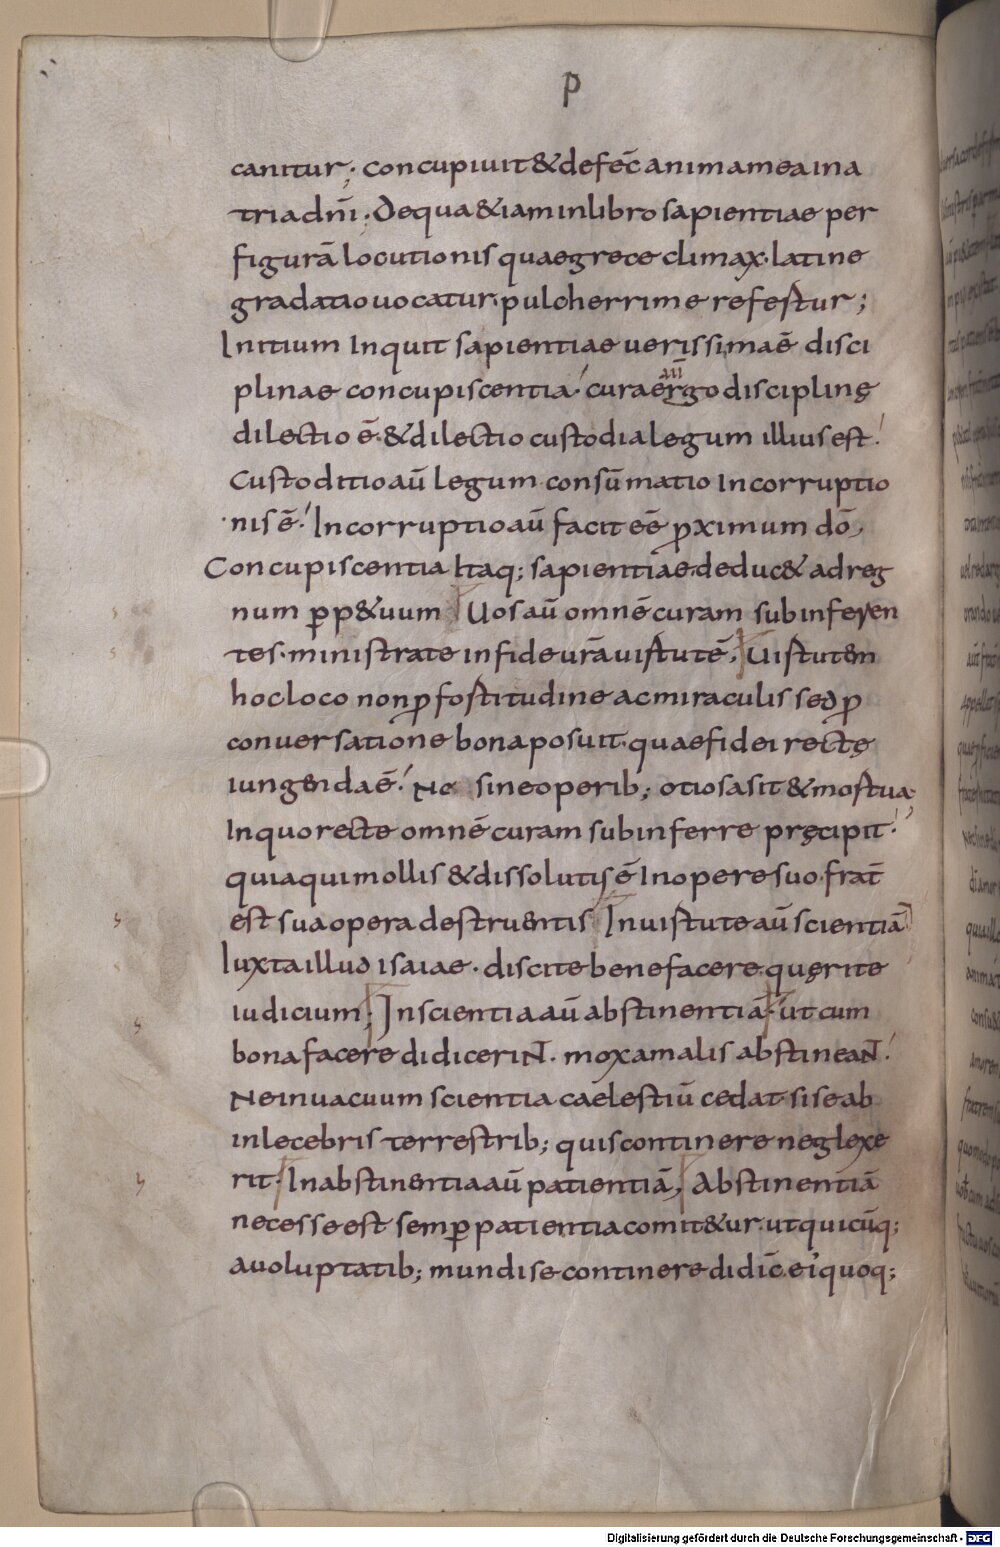 p
canitur; concupiuit & defec̄ anima mea in a
tria dn̄i. De qua & iam in libro sapientiae per
figurā locutionis quae grece climax. latine
gradatio uocatur. pulcherrime refertur;
Initium Inquit sapientiae uerissimaē disci
plinae concupiscentia. cura ergo disciplinę
dilectio ē. & dilectio custodia legum illius est.
Custoditio aū legum consūmatio Incorruptio
nis ē. Incorruptio aū facit eē ꝓximum dō,
Concupiscentia Itaq; sapientiae deduc& ad reg
num p̲p&uum Uos aū omnē curam subinferen
tes. ministrate in fide ur̄a uirtutē. Uirtutem
hoc loco non ꝓ fortitudine ac miraculis sed ꝓ
conuersatione bona posuit. quae fidei rectę
iungenda ē. Ne sine operib; otiosa sit & mortua.
In quo recte omnē curam subinferre pręcipit.
quia qui mollis & dissolutus ē In opere suo. frat̄
est sua opera destruentis In uirtute aū scientiā
Iuxta illud isaiae. discite benefacere. quęrite
iudicium; In scientia aū abstinentiā. ut cum
bona facere didicerint. mox a malis abstineant.
Ne in uacuum scientia caelestiū cedat. si se ab
inlecebris terrestrib; quis continere neglexe
rit. In abstinentia aū patientiā, Abstinentiā
necesse est semp̲ patientia comit&ur. ut quicūq;
a uoluptatib; mundi se continere didic̄. ei quoq;
Digitalisierung gefördert durch die Deutsche Forschungsgemeinschaft - DFG